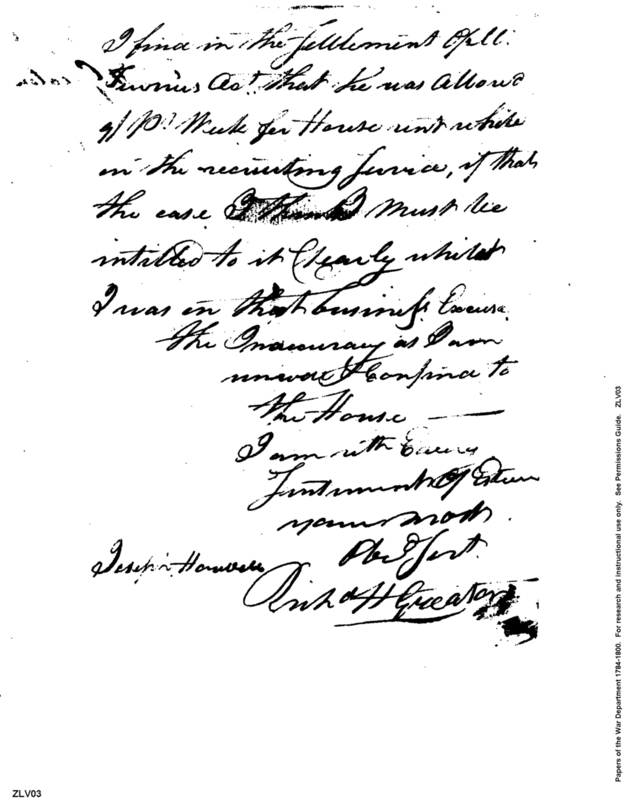 I find in the Settlement of
Act. that he was Allowd
9/ Pr. Week for House rent while
in the recruiting Service, if that
the case I think I must be
intitled to it Clearly whilst
I was in that business Excuse
the Inaccuracy as I am
unwell & Confind to
the House —
I am with Every
Sentiment Of Esteem
your most
Obet Sert.
Joseph Howell
Richd H Greaton
Papers of the War Department 1784-1800. For research and instructional use only. See Permissions Guide. ZLV03
ZLV03